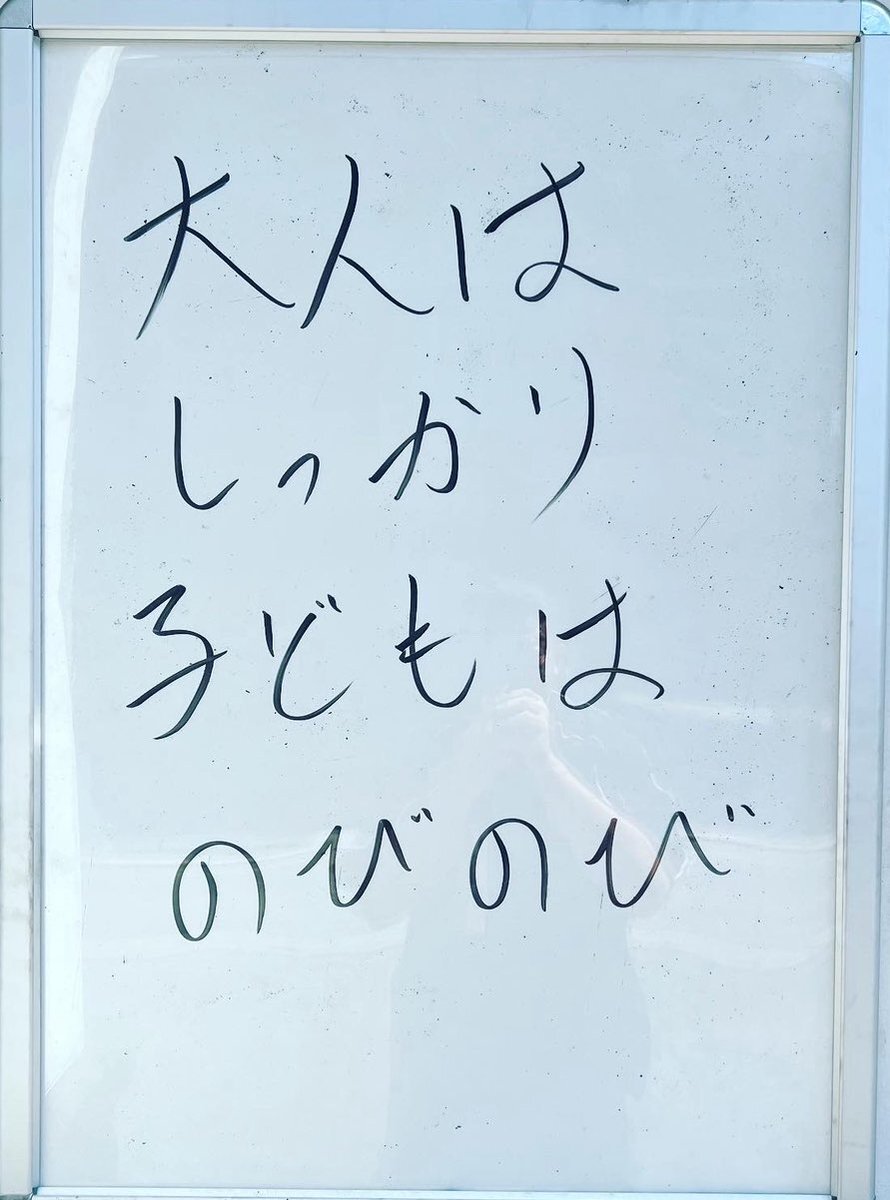 大人は
しっかり
子どもは
のびのび